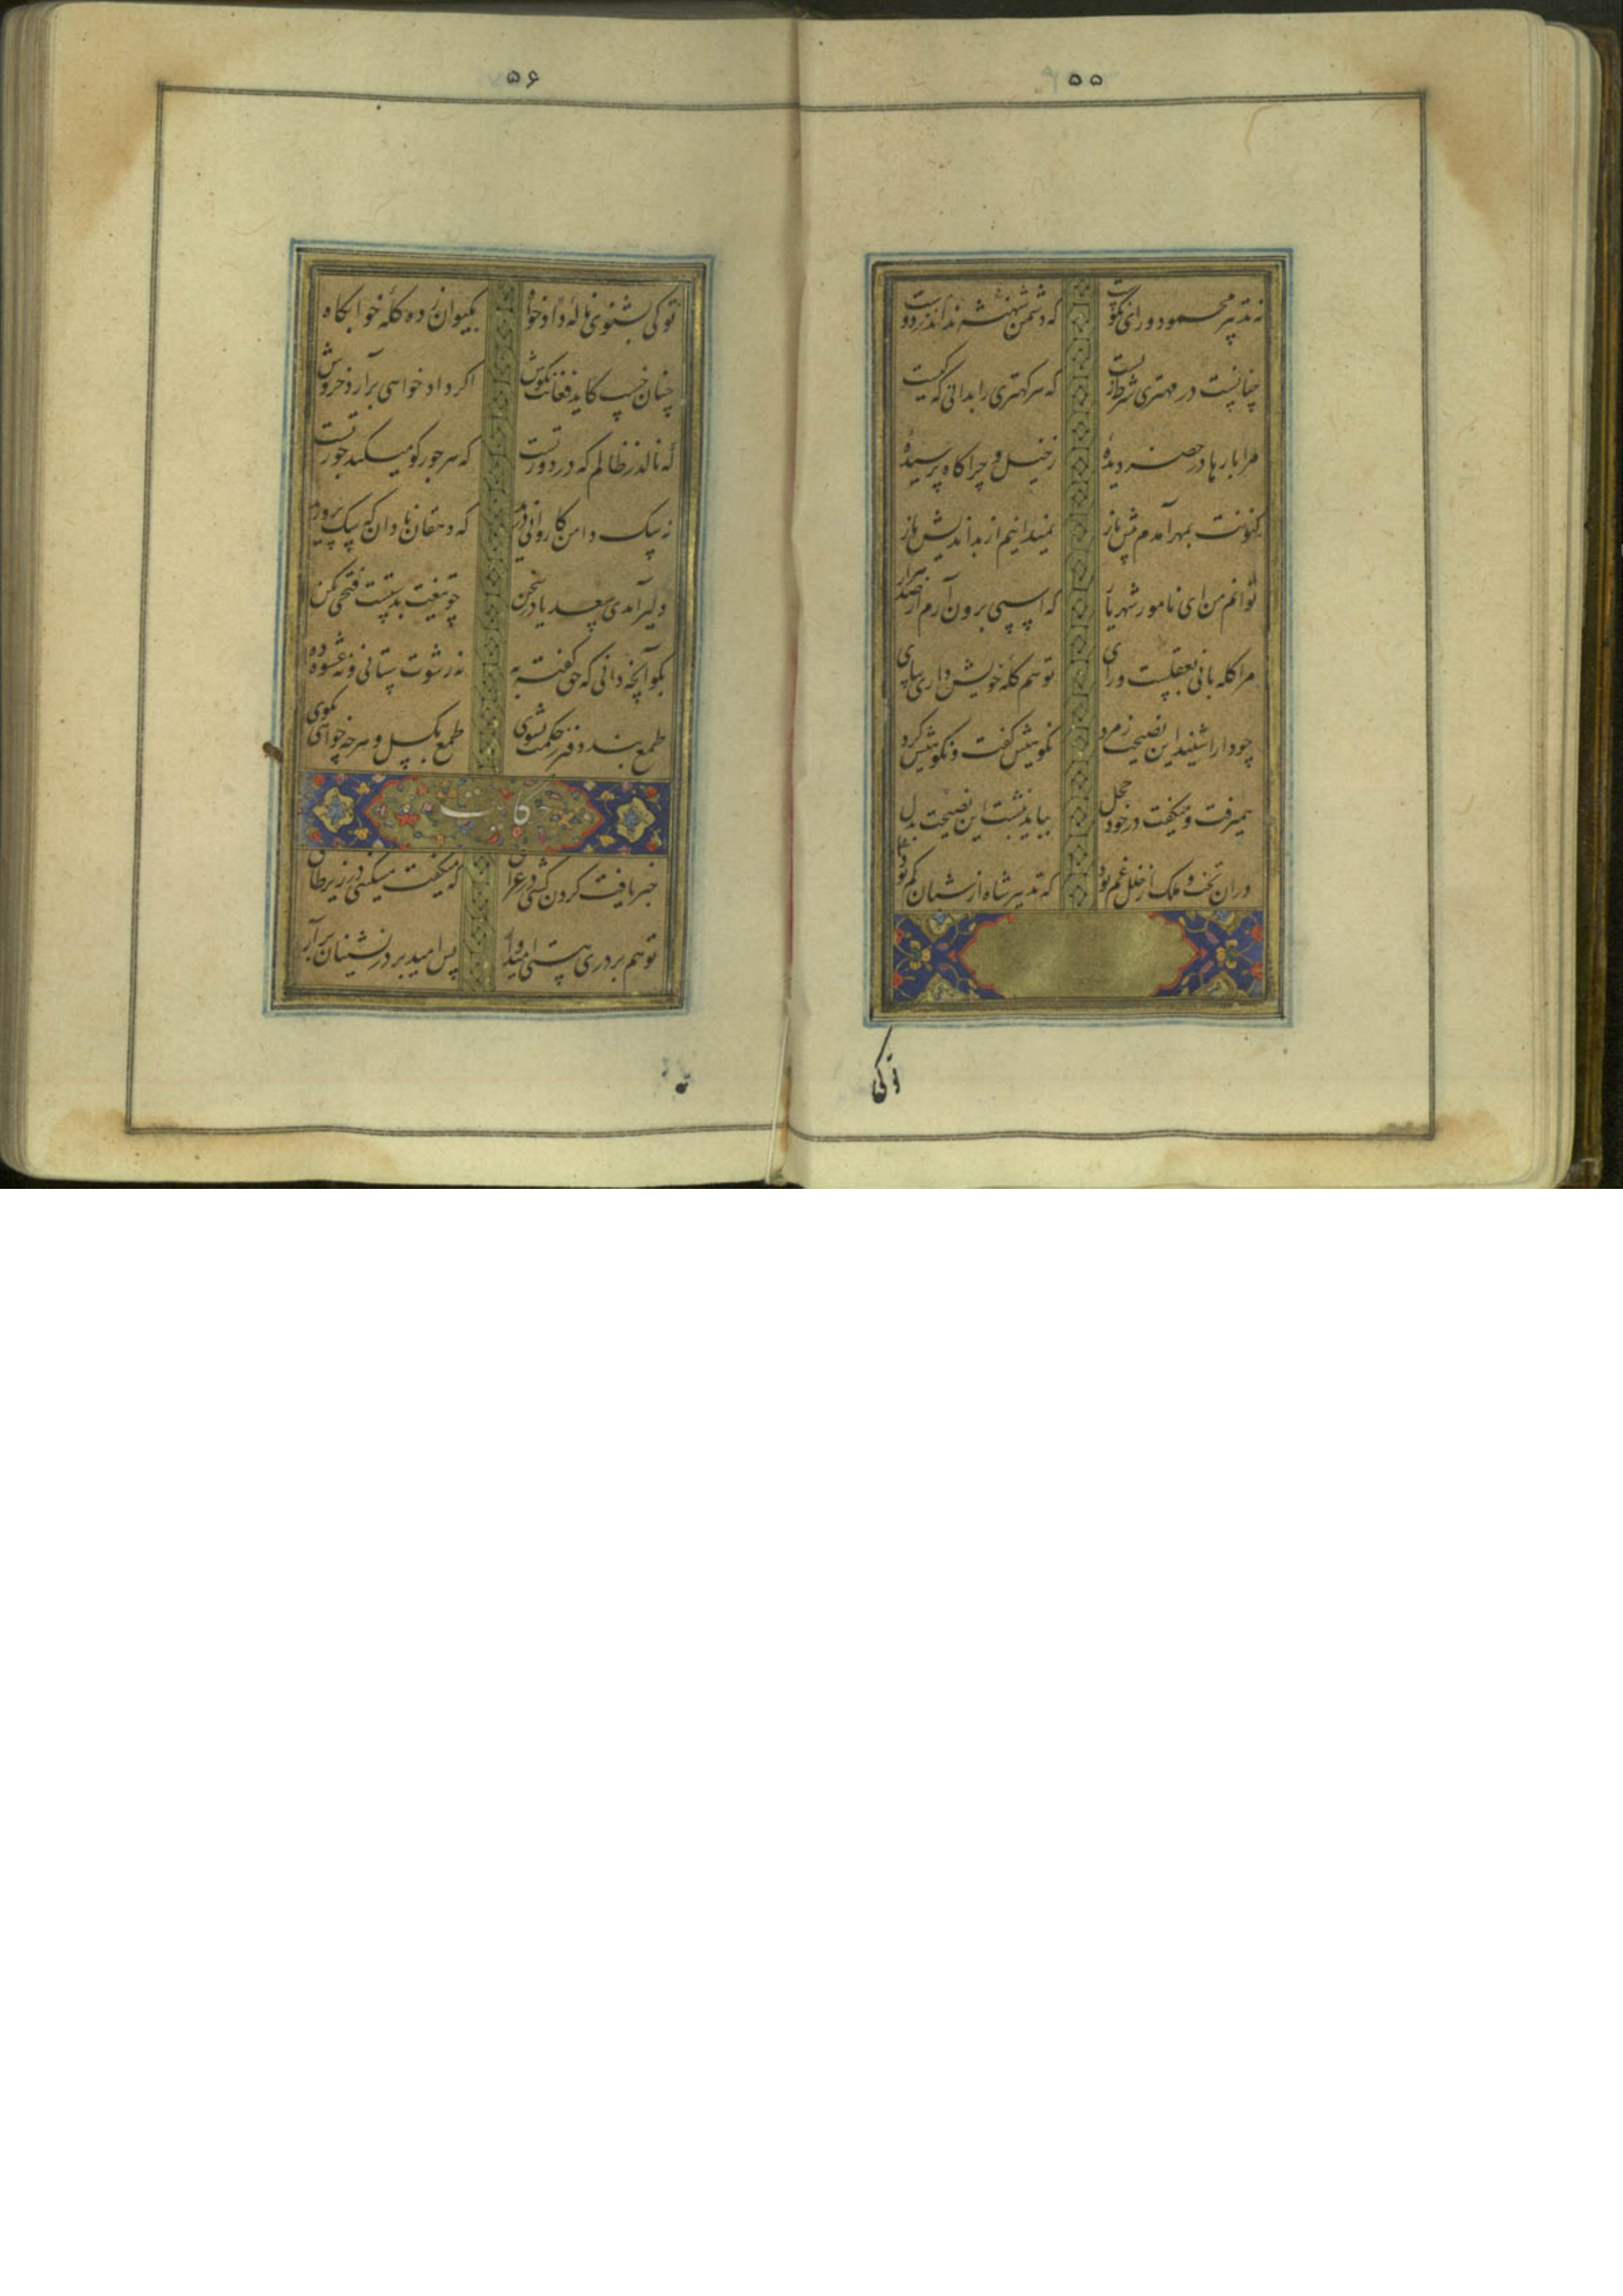 ۵۵
نه تدبیر محمود و رای نکوست که دشمن نداند شهنشه ز دوست
چنانست در مهتری شرط زیست که هر کهتری را بدانی که کیست
مرا بارها در حضر دیدهٔ ز خیل و چراگاه پرسیدهٔ
کنونت بمهر آمدم پیش باز نمیدانیم از بداندیش باز
توانم من ای نامور شهریار که اسپی برون آرم از صد هزار
مرا کله بانی بعقلست و رای تو هم کلهٔ خویش داری بپای
چو دارا شنید این نصیحت ز مرد نکوئیش گفت و نکوئیش کرد
همیرفت و میگفت در خود خجل بباید نبشت این نصیحت بدل
در ان تخت و ملک از خلل غم بود که تدبیر شاه از شبان کم بود
تو کی
۵۶
تو کی بشنوی نالهٔ دادخواه بکیوان زده کلهٔ خوابکاه
چنان خسپ کاید فغانت بکوش اکر دادخواهی برآرد خروش
که نالد ز ظالم که در دور تست که هر جور کو میکند جور تست
نه سک دامن کاروانی درید که دهقان نادان که سک پرورید
دلیر آمدی سعدیا در سخن چو تیغت بدستست فتحی بکن
بکو آنچه دانی که حق کفته به نه رشوت ستانی و نه عشوه ده
طمع بند و دفتر ز حکمت بشوی طمع بکسل و هرچه خواهی بکوی
حکایت
خبر یافت کردن کشی در عراق که میکفت مسکینی در زیر طاق
تو هم بر دری هستی امیدوار پس امید بر در نشینان برآر